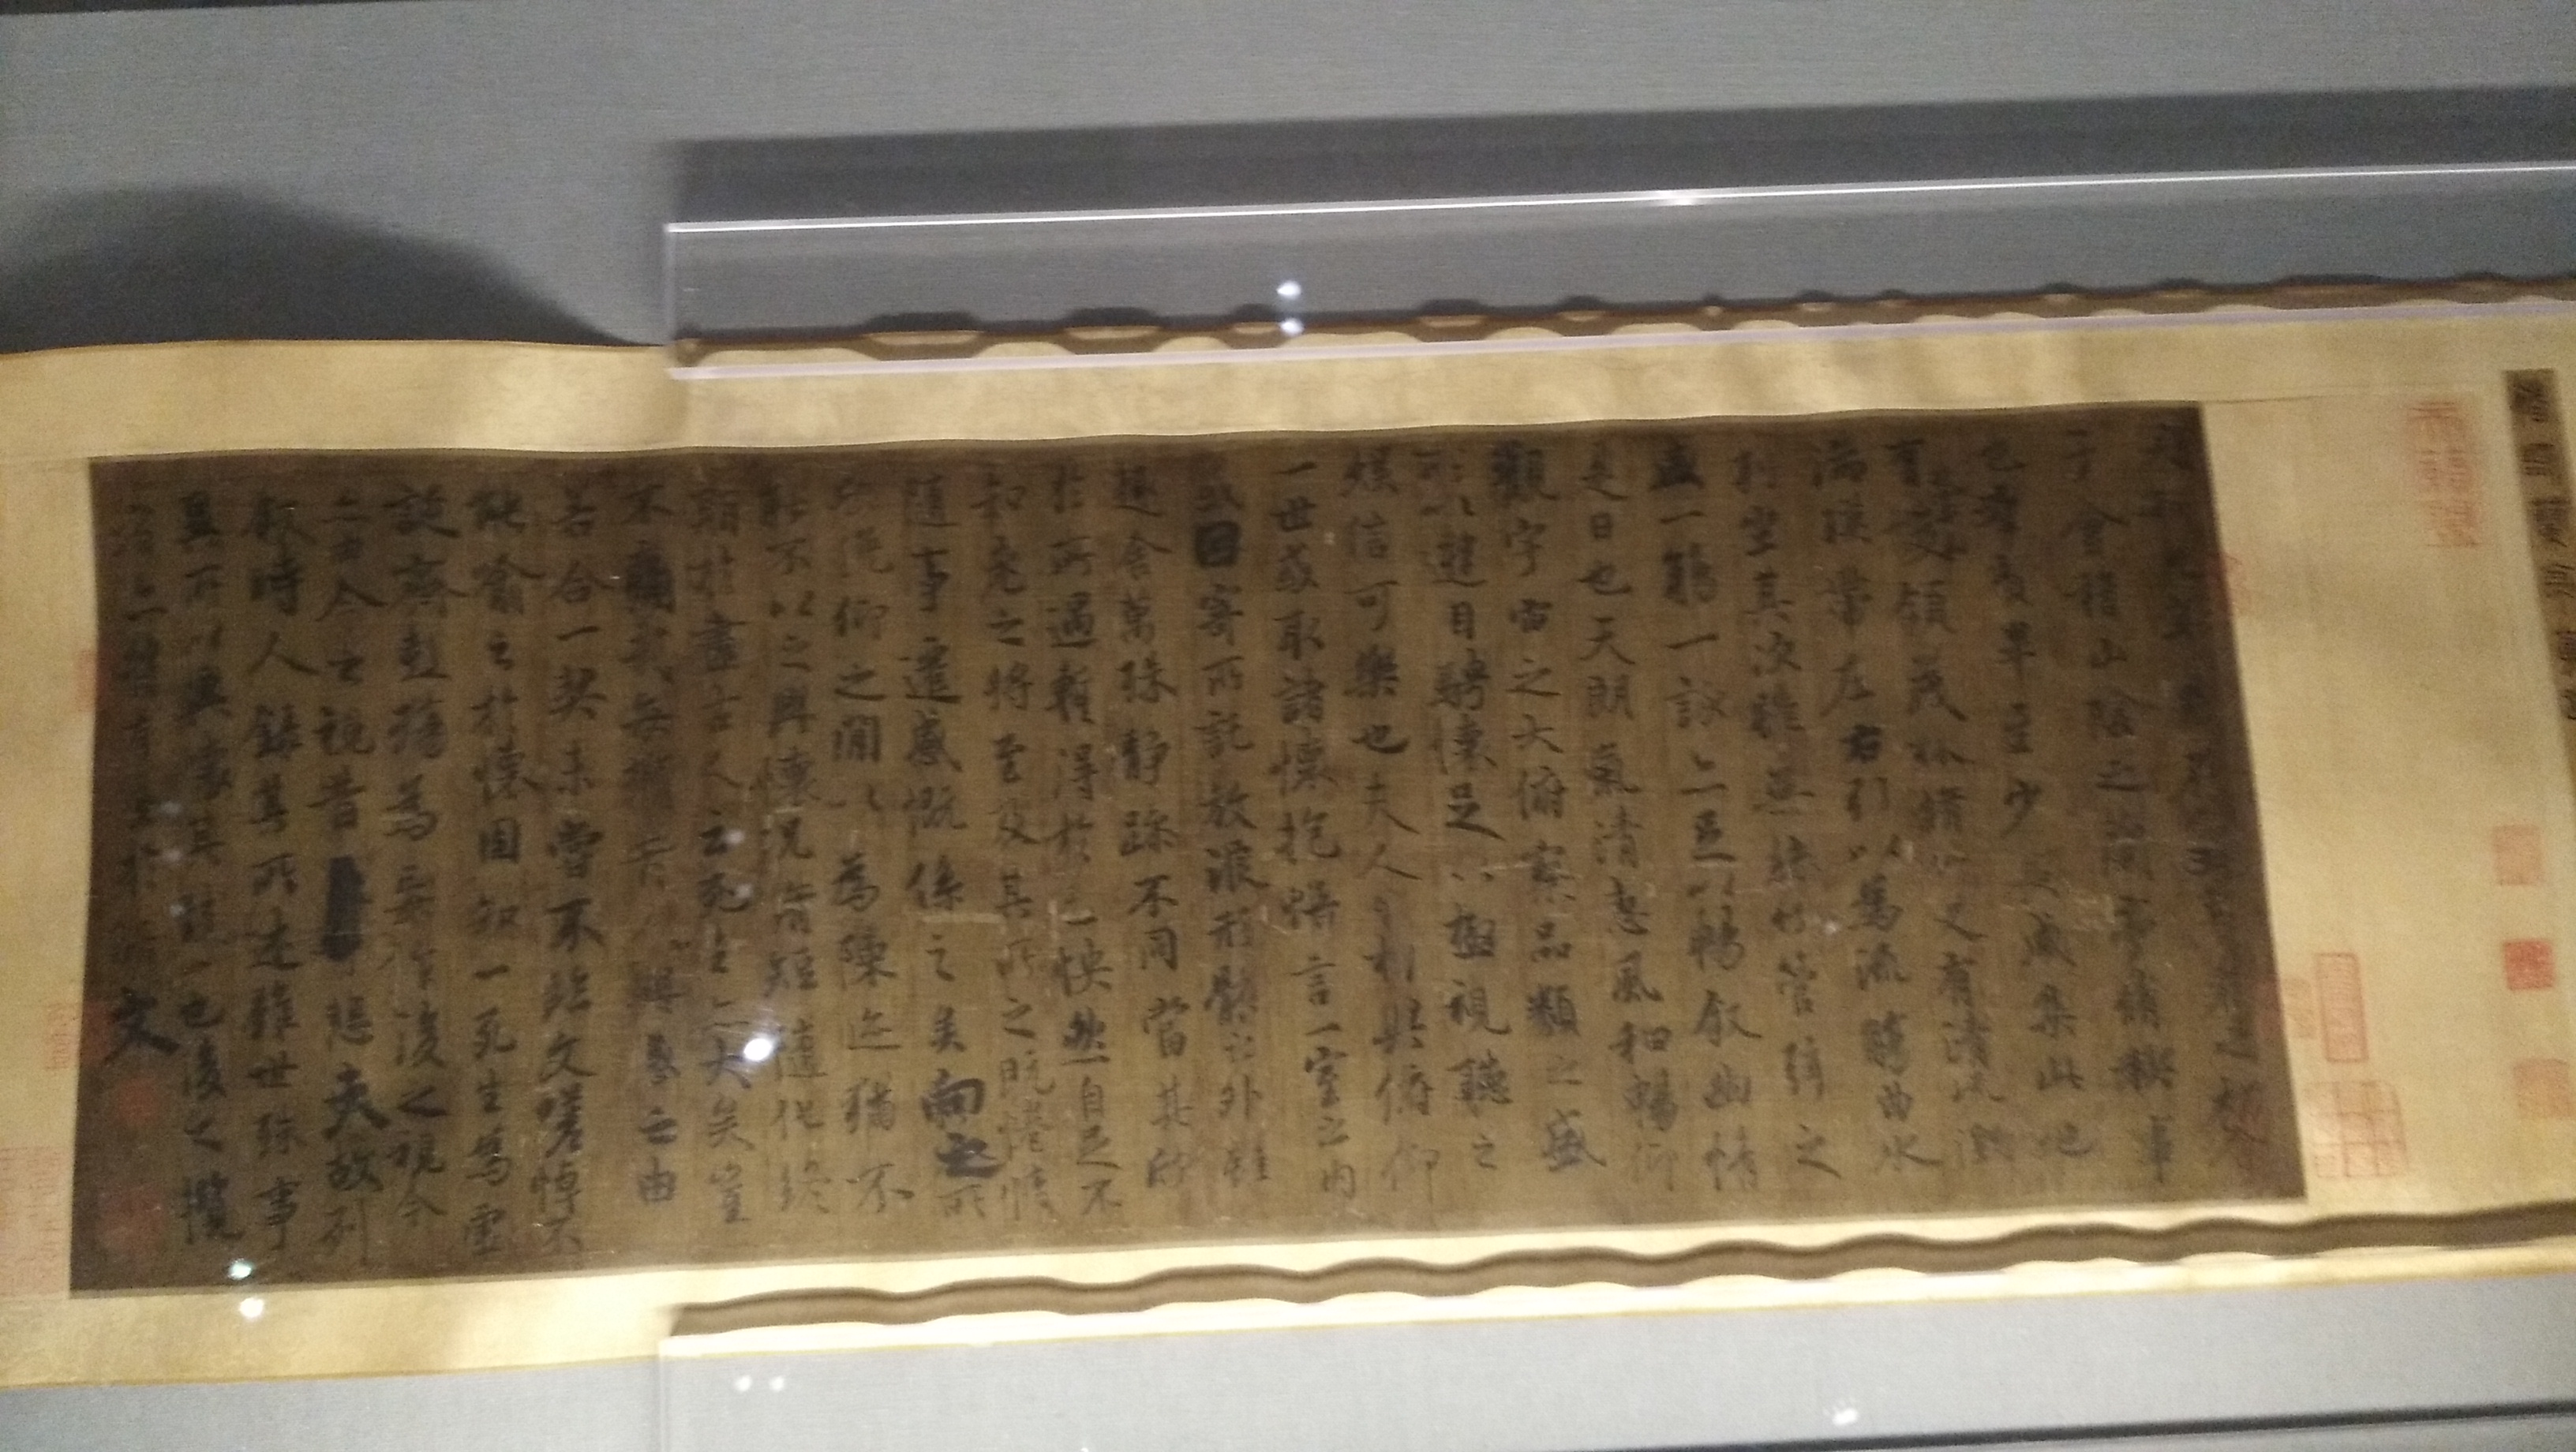 于會稽山陰之蘭亭脩稧事
也羣賢畢至少長咸集此地
有崇山峻領茂林脩竹又有清流激
湍暎帶左右引以為流觴曲水
列坐其次雖無絲竹管弦之
盛一觴一詠亦足以暢敘幽情
是日也天朗氣清惠風和暢仰
觀宇宙之大俯察品類之盛
所以遊目騁懷足以極視聽之
娛信可樂也夫人之相與俯仰
一世或取諸懷抱悟言一室之內
或因寄所託放浪形骸之外雖
趣舍萬殊靜躁不同當其欣
於所遇暫得於己怏然自足不
知老之將至及其所之既惓情
隨事遷感慨係之矣向之所
欣俛仰之閒以為陳迹猶不
能不以之興懷況脩短隨化終
期於盡古人云死生亦大矣豈
不痛哉每攬昔人興感之由
若合一契未嘗不臨文嗟悼不
能喻之於懷固知一死生為虛
誕齊彭殤為妄作後之視今
亦由今之視昔悲夫故列
敘時人錄其所述雖世殊事
異所以興懷其致一也後之攬
者亦將有感於斯文